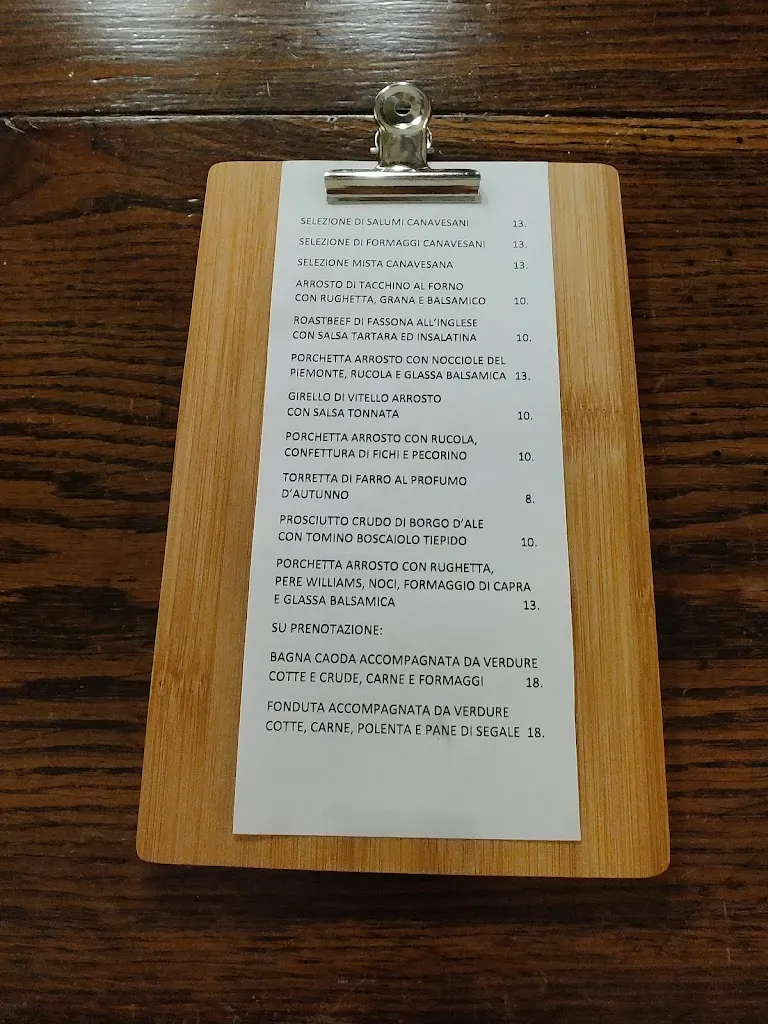 SELEZIONE DI SALUMI CANAVESANI 13.
SELEZIONE DI FORMAGGI CANAVESANI 13.
SELEZIONE MISTA CANAVESANA 13.
ARROSTO DI TACCHINO AL FORNO
CON RUGHETTA, GRANA E BALSAMICO 10.
ROASTBEEF DI FASSONA ALL'INGLESE
CON SALSA TARTARA ED INSALATINA 10.
PORCHETTA ARROSTO CON NOCCIOLE DEL
PIEMONTE, RUCOLA E GLASSA BALSAMICA 13.
GIRELLO DI VITELLO ARROSTO
CON SALSA TONNATA 10.
PORCHETTA ARROSTO CON RUCOLA,
CONFETTURA DI FICHI E PECORINO 10.
TORRETTA DI FARRO AL PROFUMO
D'AUTUNNO 8.
PROSCIUTTO CRUDO DI BORGO D'ALE
CON TOMINO BOSCAIOLO TIEPIDO 10.
PORCHETTA ARROSTO CON RUGHETTA,
PERE WILLIAMS, NOCI, FORMAGGIO DI CAPRA
E GLASSA BALSAMICA 13.
SU PRENOTAZIONE:
BAGNA CAODA ACCOMPAGNATA DA VERDURE
COTTE E CRUDE, CARNE E FORMAGGI 18.
FONDUTA ACCOMPAGNATA DA VERDURE
COTTE, CARNE, POLENTA E PANE DI SEGALE 18.